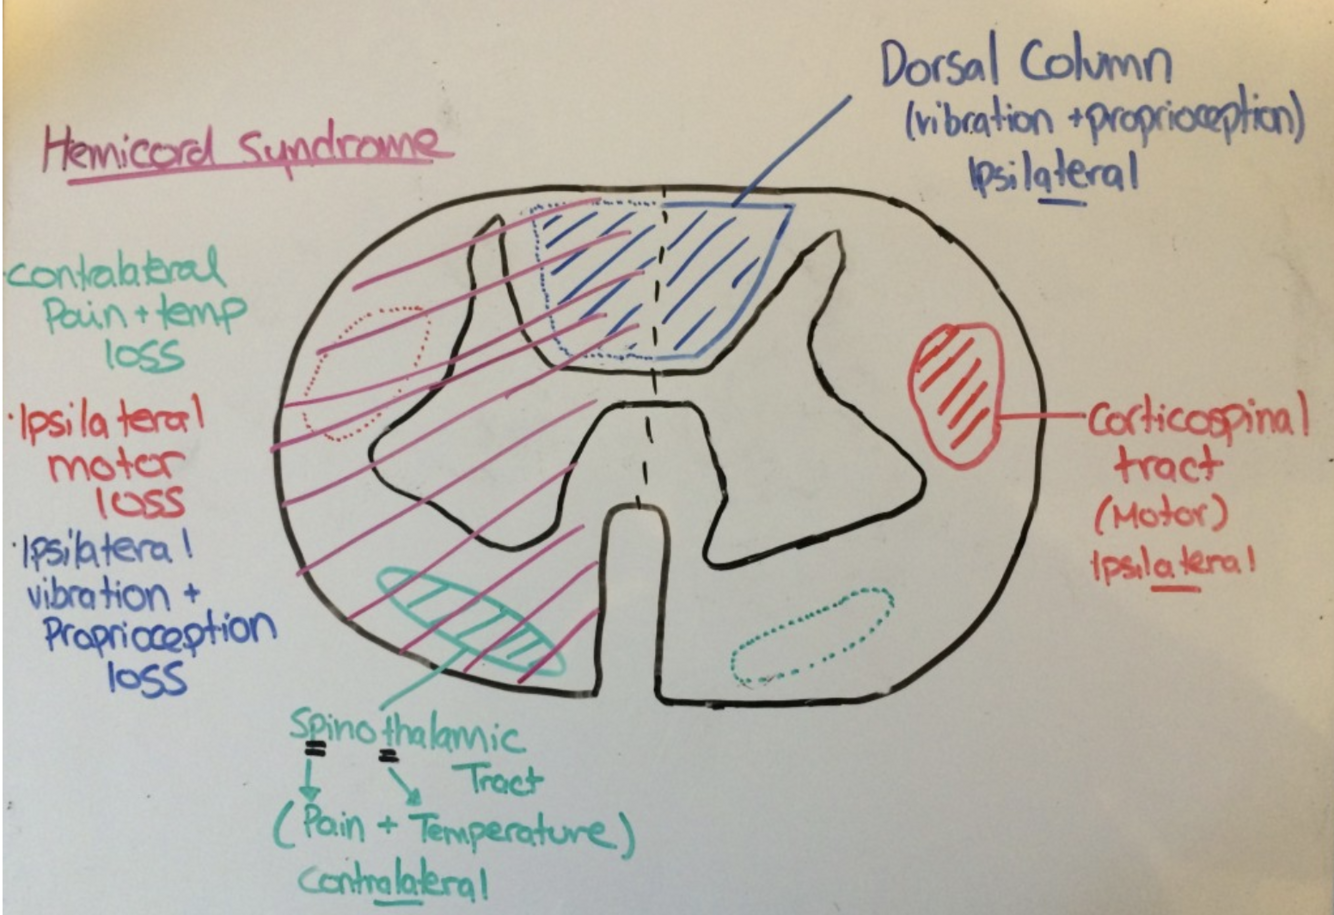 Hemicord Syndrome
Dorsal Column
(vibration + proprioception)
Ipsilateral
·contralateral
Pain + temp
loss
·Ipsilateral
motor
loss
·Ipsilateral
vibration +
Proprioception
loss
Corticospinal
tract
(Motor)
Ipsilateral
Spinothalamic
Tract
(Pain + Temperature)
contralateral